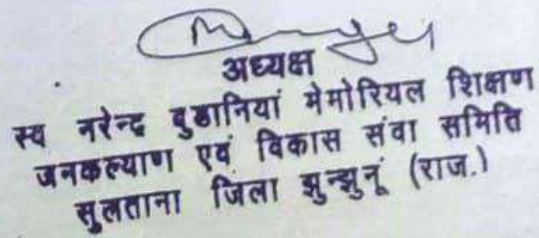 अध्यक्ष
स्व नरेन्द्र बुडानियां मेमोरियल शिक्षण
जनकल्याण एवं विकास संवा समिति
सुलताना जिला झुन्झुनूं (राज.)